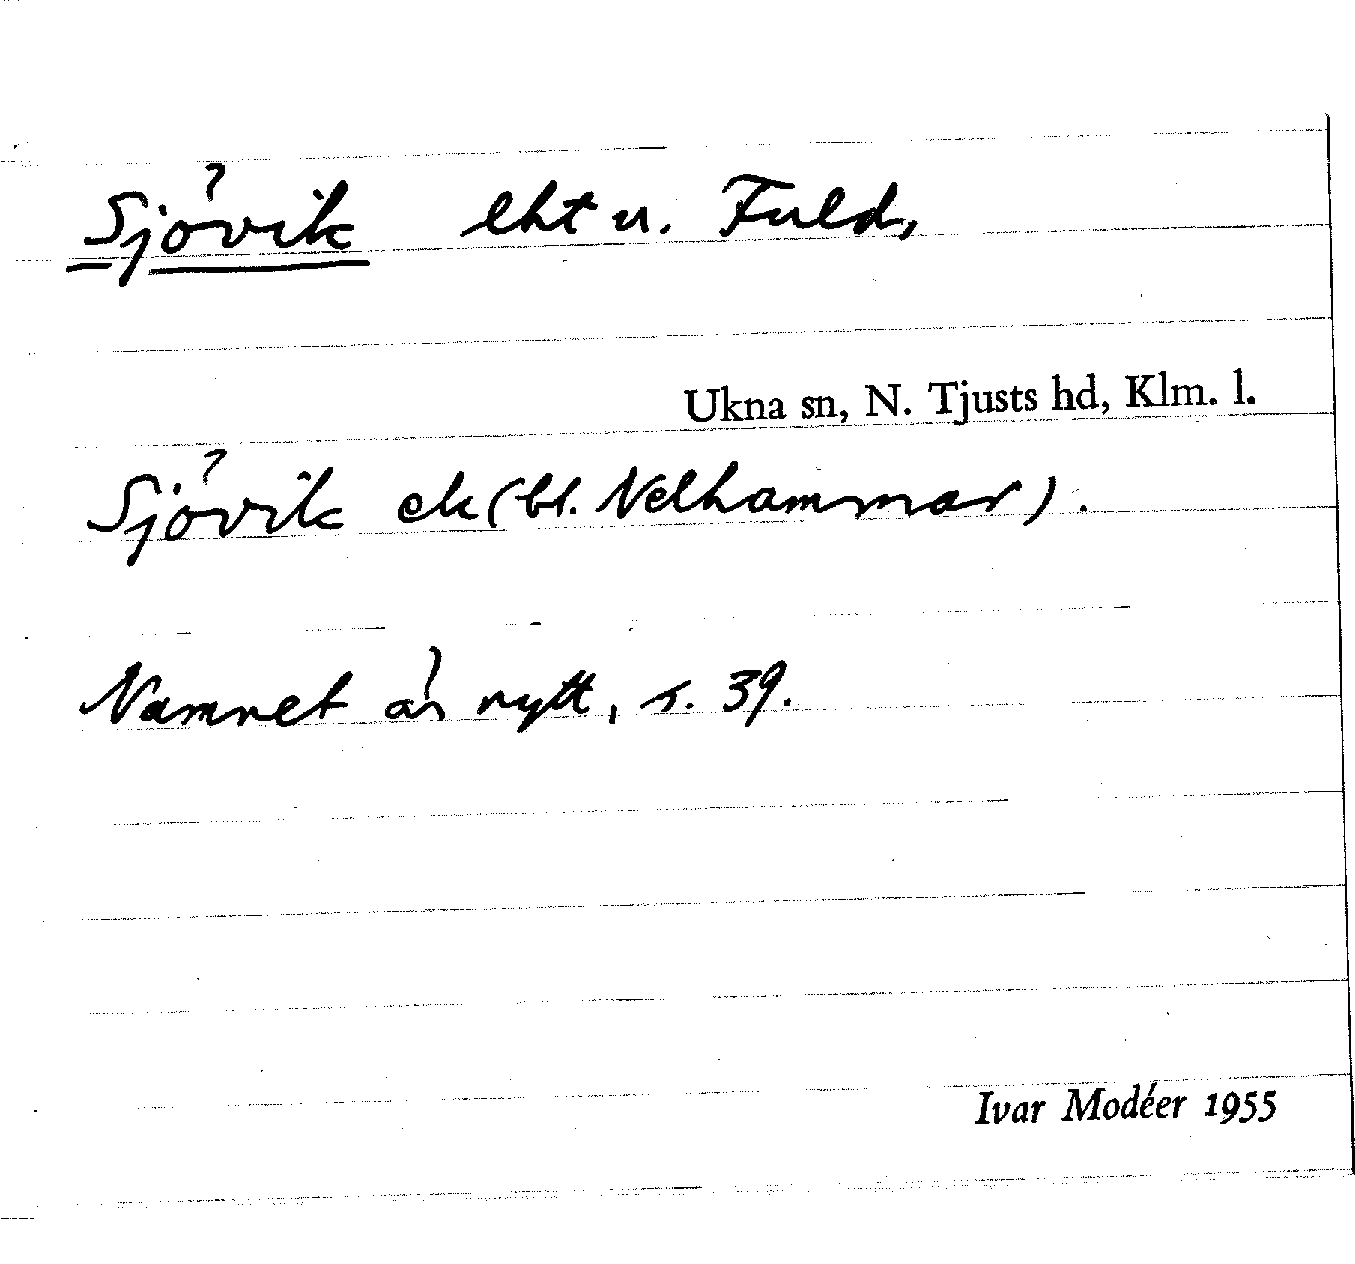 Sjövik lht u. Fuld,
Ukna sn, N. Tjusts hd, Klm. l.
Sjövik ek (bl. Nelhammar).
Namnet är nytt, s. 39.
Ivar Modéer 1955